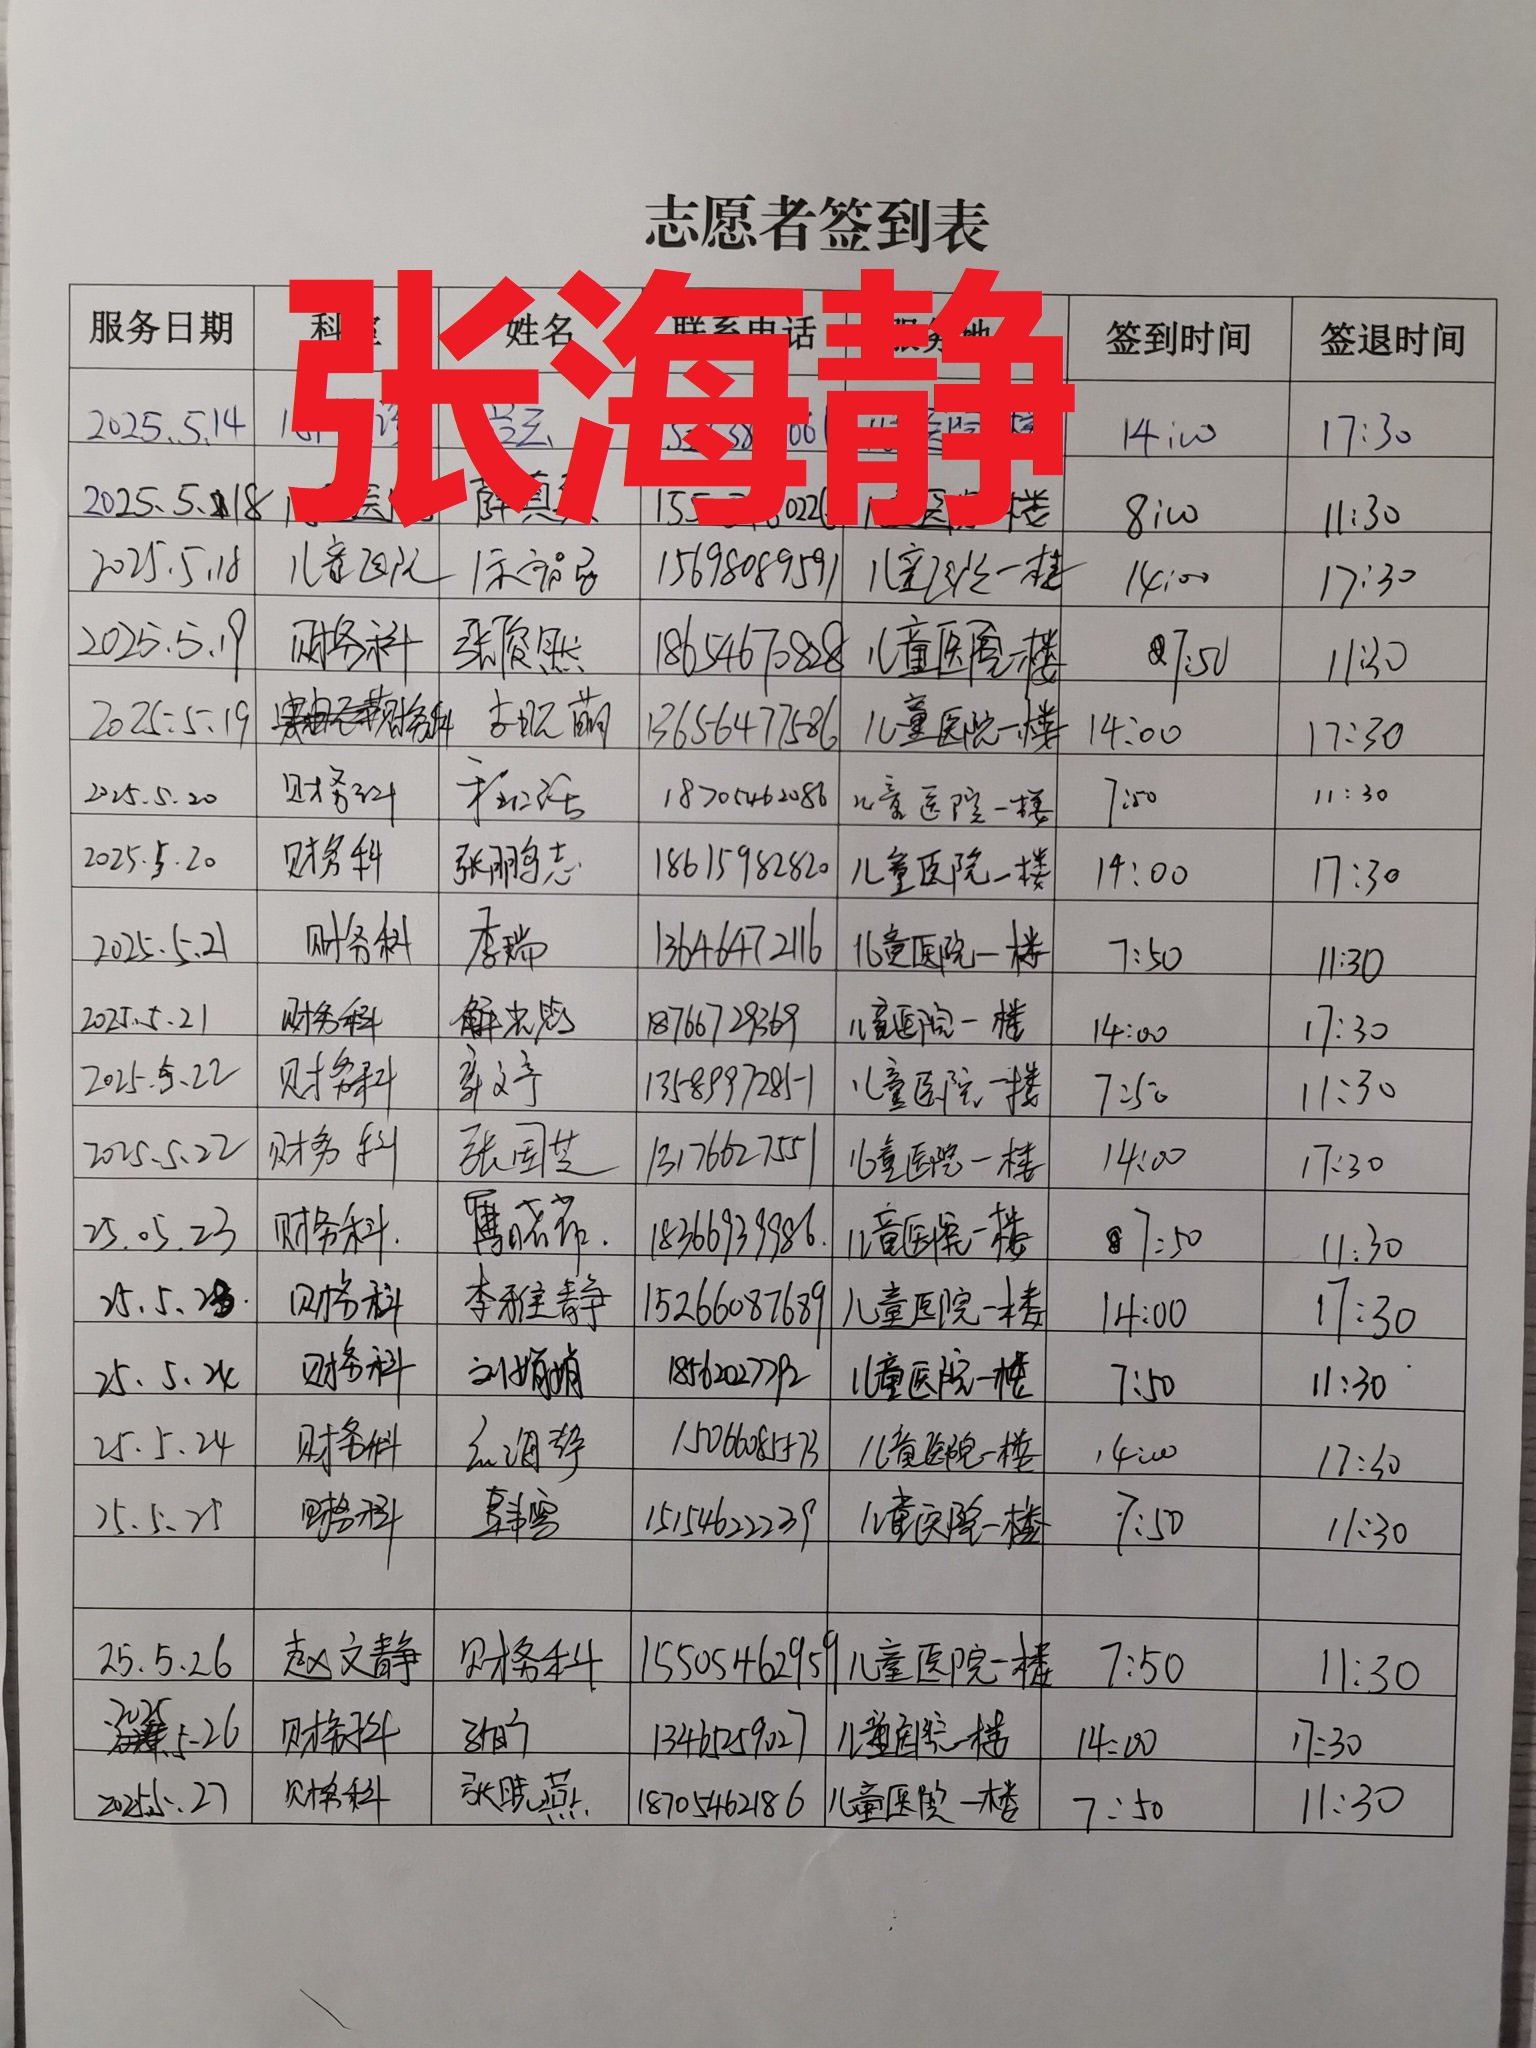 志愿者签到表
张海静
服务日期 签到时间 签退时间
2025.5.14 14:00 17:30
2025.5.18 8:00 11:30
2025.5.18 儿童医院 15698089591 儿童医院一楼 14:00 17:30
2025.5.19 财务科 18654670828 儿童医院一楼 7:50 11:30
2025.5.19 财务科 13656477586 儿童医院一楼 14:00 17:30
2025.5.20 财务科 18705462086 儿童医院一楼 7:50 11:30
2025.5.20 财务科 张鹏志 18615982820 儿童医院一楼 14:00 17:30
2025.5.21 财务科 李瑞 13646472116 儿童医院一楼 7:50 11:30
2025.5.21 财务科 18766729369 儿童医院一楼 14:00 17:30
2025.5.22 财务科 13589972851 儿童医院一楼 7:50 11:30
2025.5.22 财务科 张国芝 13176627551 儿童医院一楼 14:00 17:30
25.05.23 财务科. 18366939986. 儿童医院一楼 7:50 11:30
25.5.23. 财务科 李雅静 15266087689 儿童医院一楼 14:00 17:30
25.5.24 财务科 刘娟娟 18562027792 儿童医院一楼 7:50 11:30
25.5.24 财务科 儿童医院一楼 14:00 17:30
25.5.25 财务科 15154622239 儿童医院一楼 7:50 11:30
25.5.26 赵文静 财务科 15505462959 儿童医院一楼 7:50 11:30
2025.5.26 财务科 13465259027 儿童医院一楼 14:00 17:30
2025.5.27 财务科 张晓燕 18705462186 儿童医院一楼 7:50 11:30